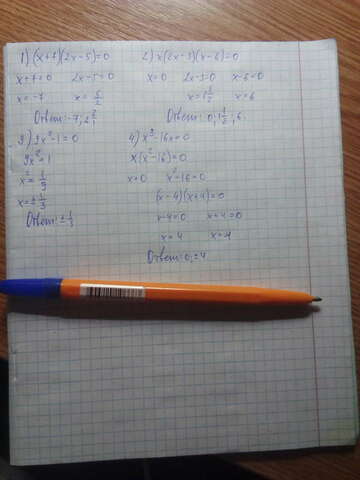 1) (x+7)(2x-5)=0
x+7=0 2x-5=0
x=-7 x=5/2
Ответ: -7;
2) x(2x-3)(x-6)=0
x=0 2x-3=0 x-6=0
x=6
Ответ: 0; 1 1/2; 6
3) 9x²-1=0
9x²=1
x²=1/9
x=±1/3
Ответ: ±1/3
4) x³-16x=0
x(x²-16)=0
x=0 x²-16=0
(x-4)(x+4)=0
x-4=0 x+4=0
x=4 x=-4
Ответ: 0; ±4